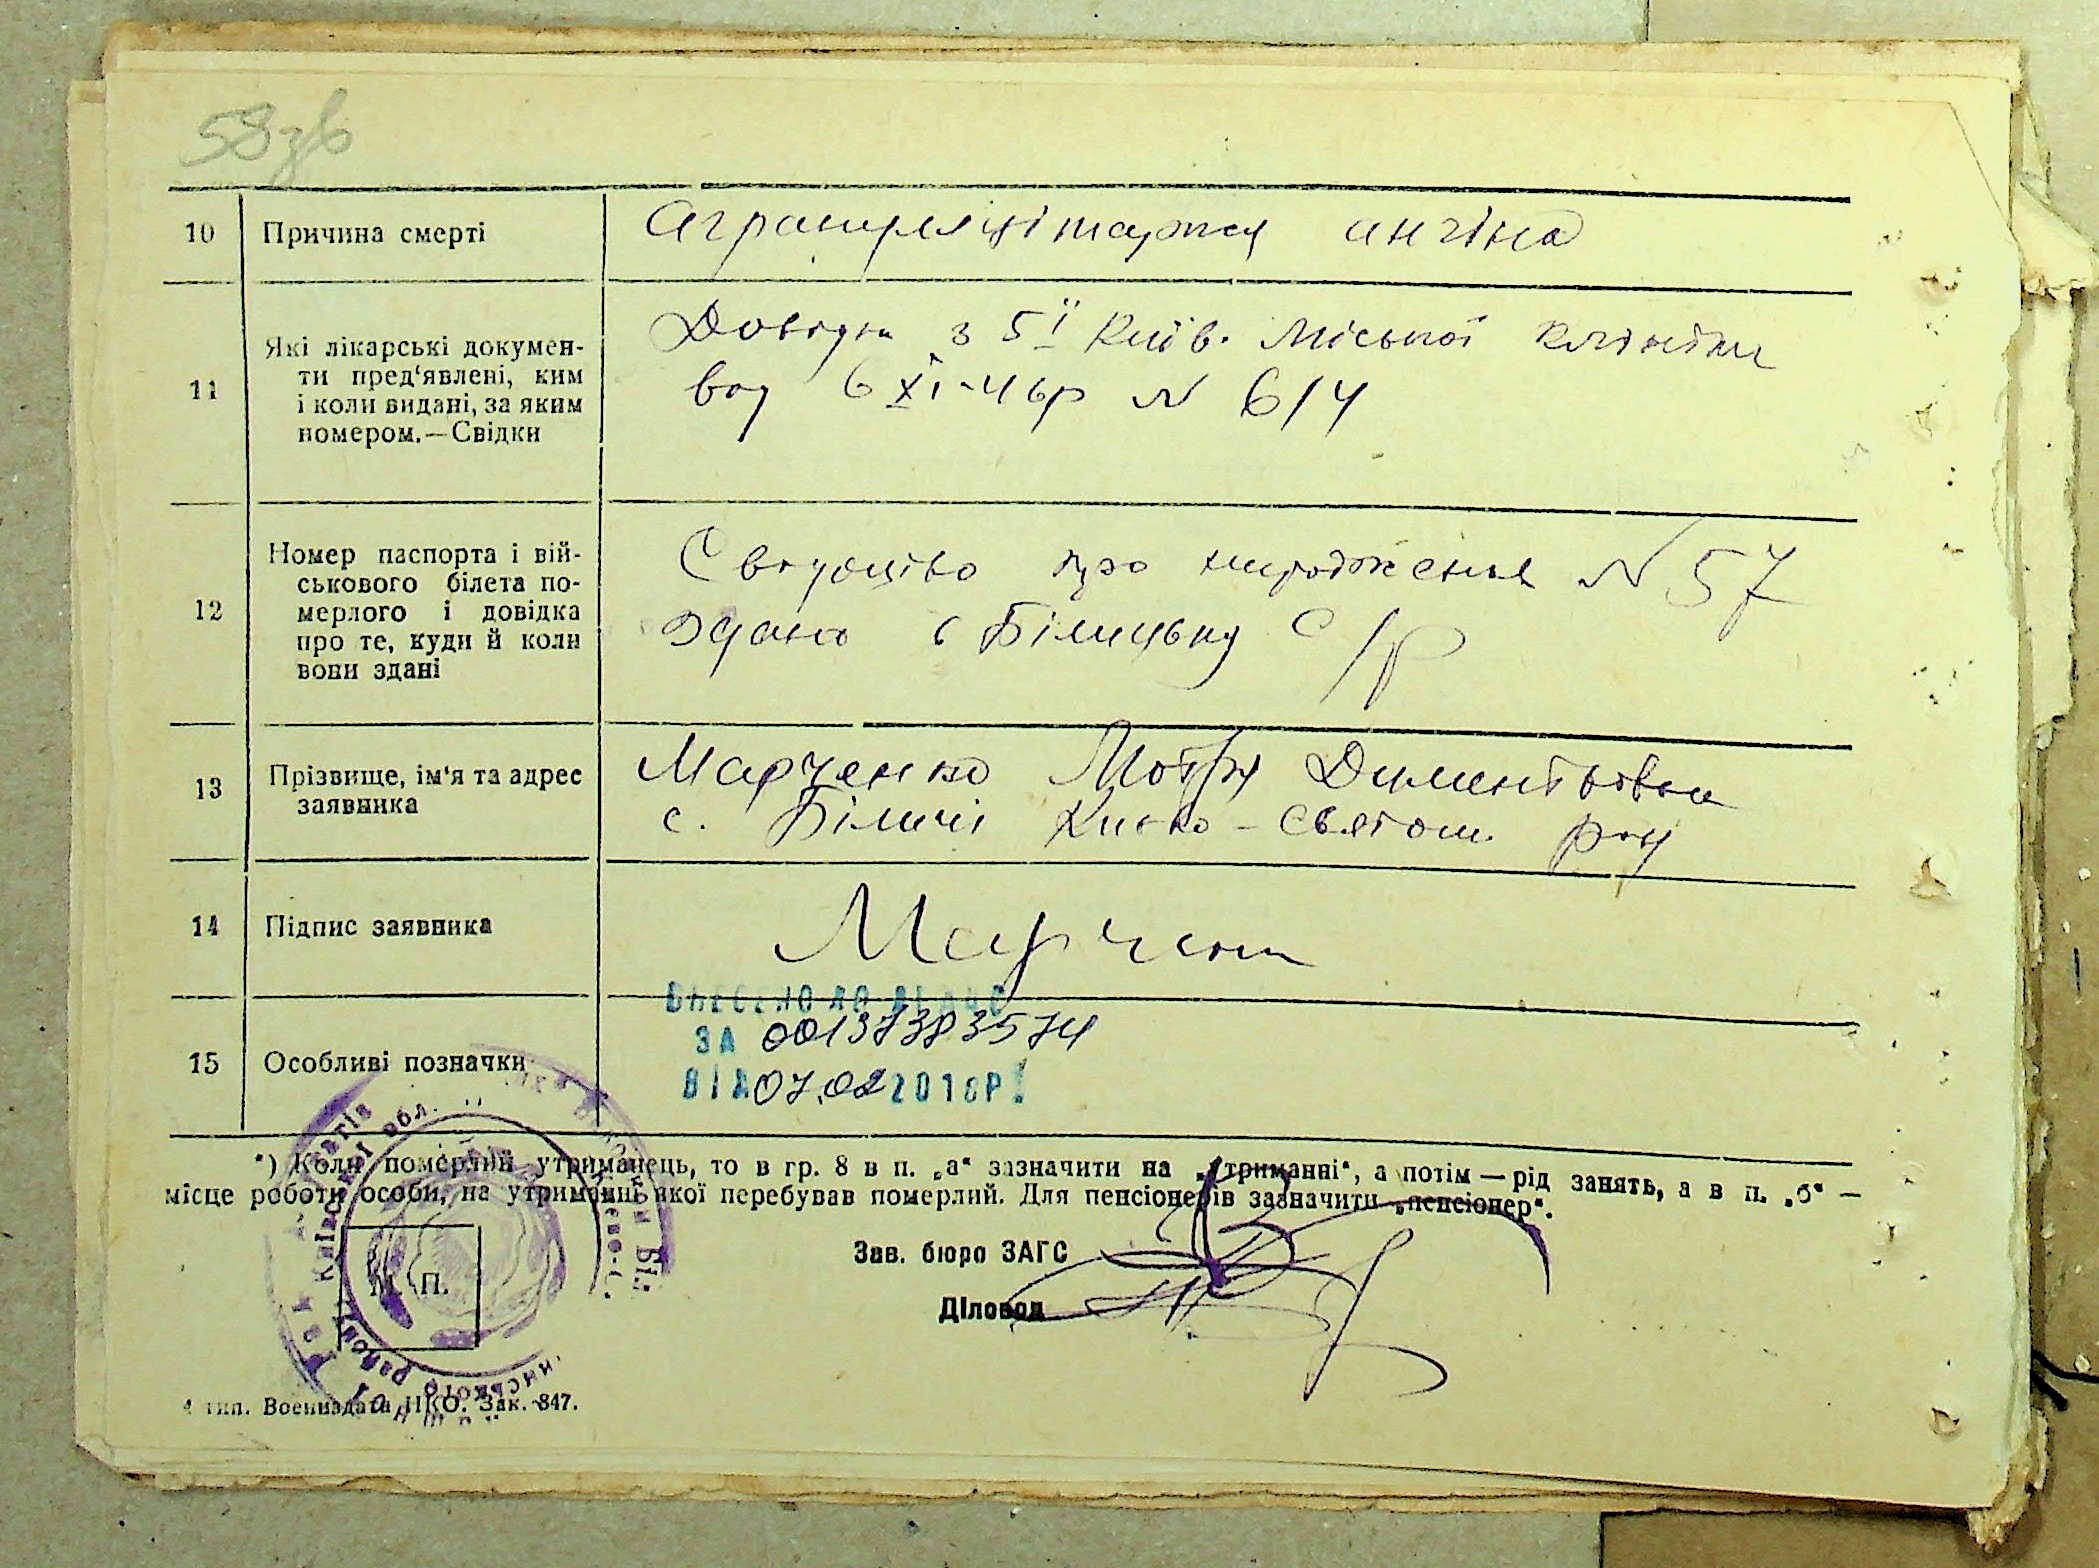 58 зв
10 Причина смерті
Агрануляцітарная ангіна
11 Які лікарські докумен-
ти пред'явлені, ким
і коли видані, за яким
номером.—Свідки
Довідка з 5ї Київ. Міської клініки
від 6 XI-46р N 614
12 Номер паспорта і вій-
ськового білета по-
мерлого і довідка
про те, куди й коли
вони здані
Свідоцтво про народження N 57
Здано в Біліцьку С/Р
13 Прізвище, ім'я та адрес
заявника
Марченко Мотря Диментьовна
с. Біличі Києво-Святош. р-ну
14 Підпис заявника
Марченк
15 Особливі позначки
ВНЕСЕНО ДО ДРАЦС
ЗА 00137383574
ВІД 07.02 2018Р.
*) Коли померлий утриманець, то в гр. 8 в п. „а“ зазначити на „утриманні“, а потім — рід занять, а в п. „б“ —
місце роботи особи, на утриманні якої перебував померлий. Для пенсіонерів зазначити „пенсіонер“.
Зав. бюро ЗАГС
Діловод
М. П.
4 тип. Воениздата НКО. Зак. 847.